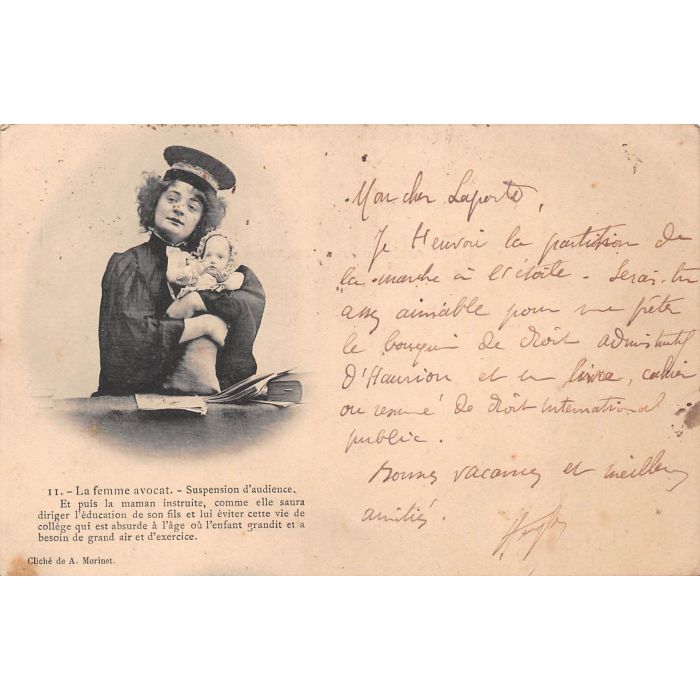 Mon cher Laporte,
Je t'envoi la partition de
la marche à l'étoile. Seras-tu
assez aimable pour me prêter
le bouquin de droit administratif
d'Hauriou et un livre, cahier
ou resumé de droit international
public.
Bonnes vacances et meilleures
amitiés.
11. - La femme avocat. - Suspension d'audience.
Et puis la maman instruite, comme elle saura
diriger l'éducation de son fils et lui éviter cette vie de
collège qui est absurde à l'âge où l'enfant grandit et a
besoin de grand air et d'exercice.
Cliché de A. Morinet.